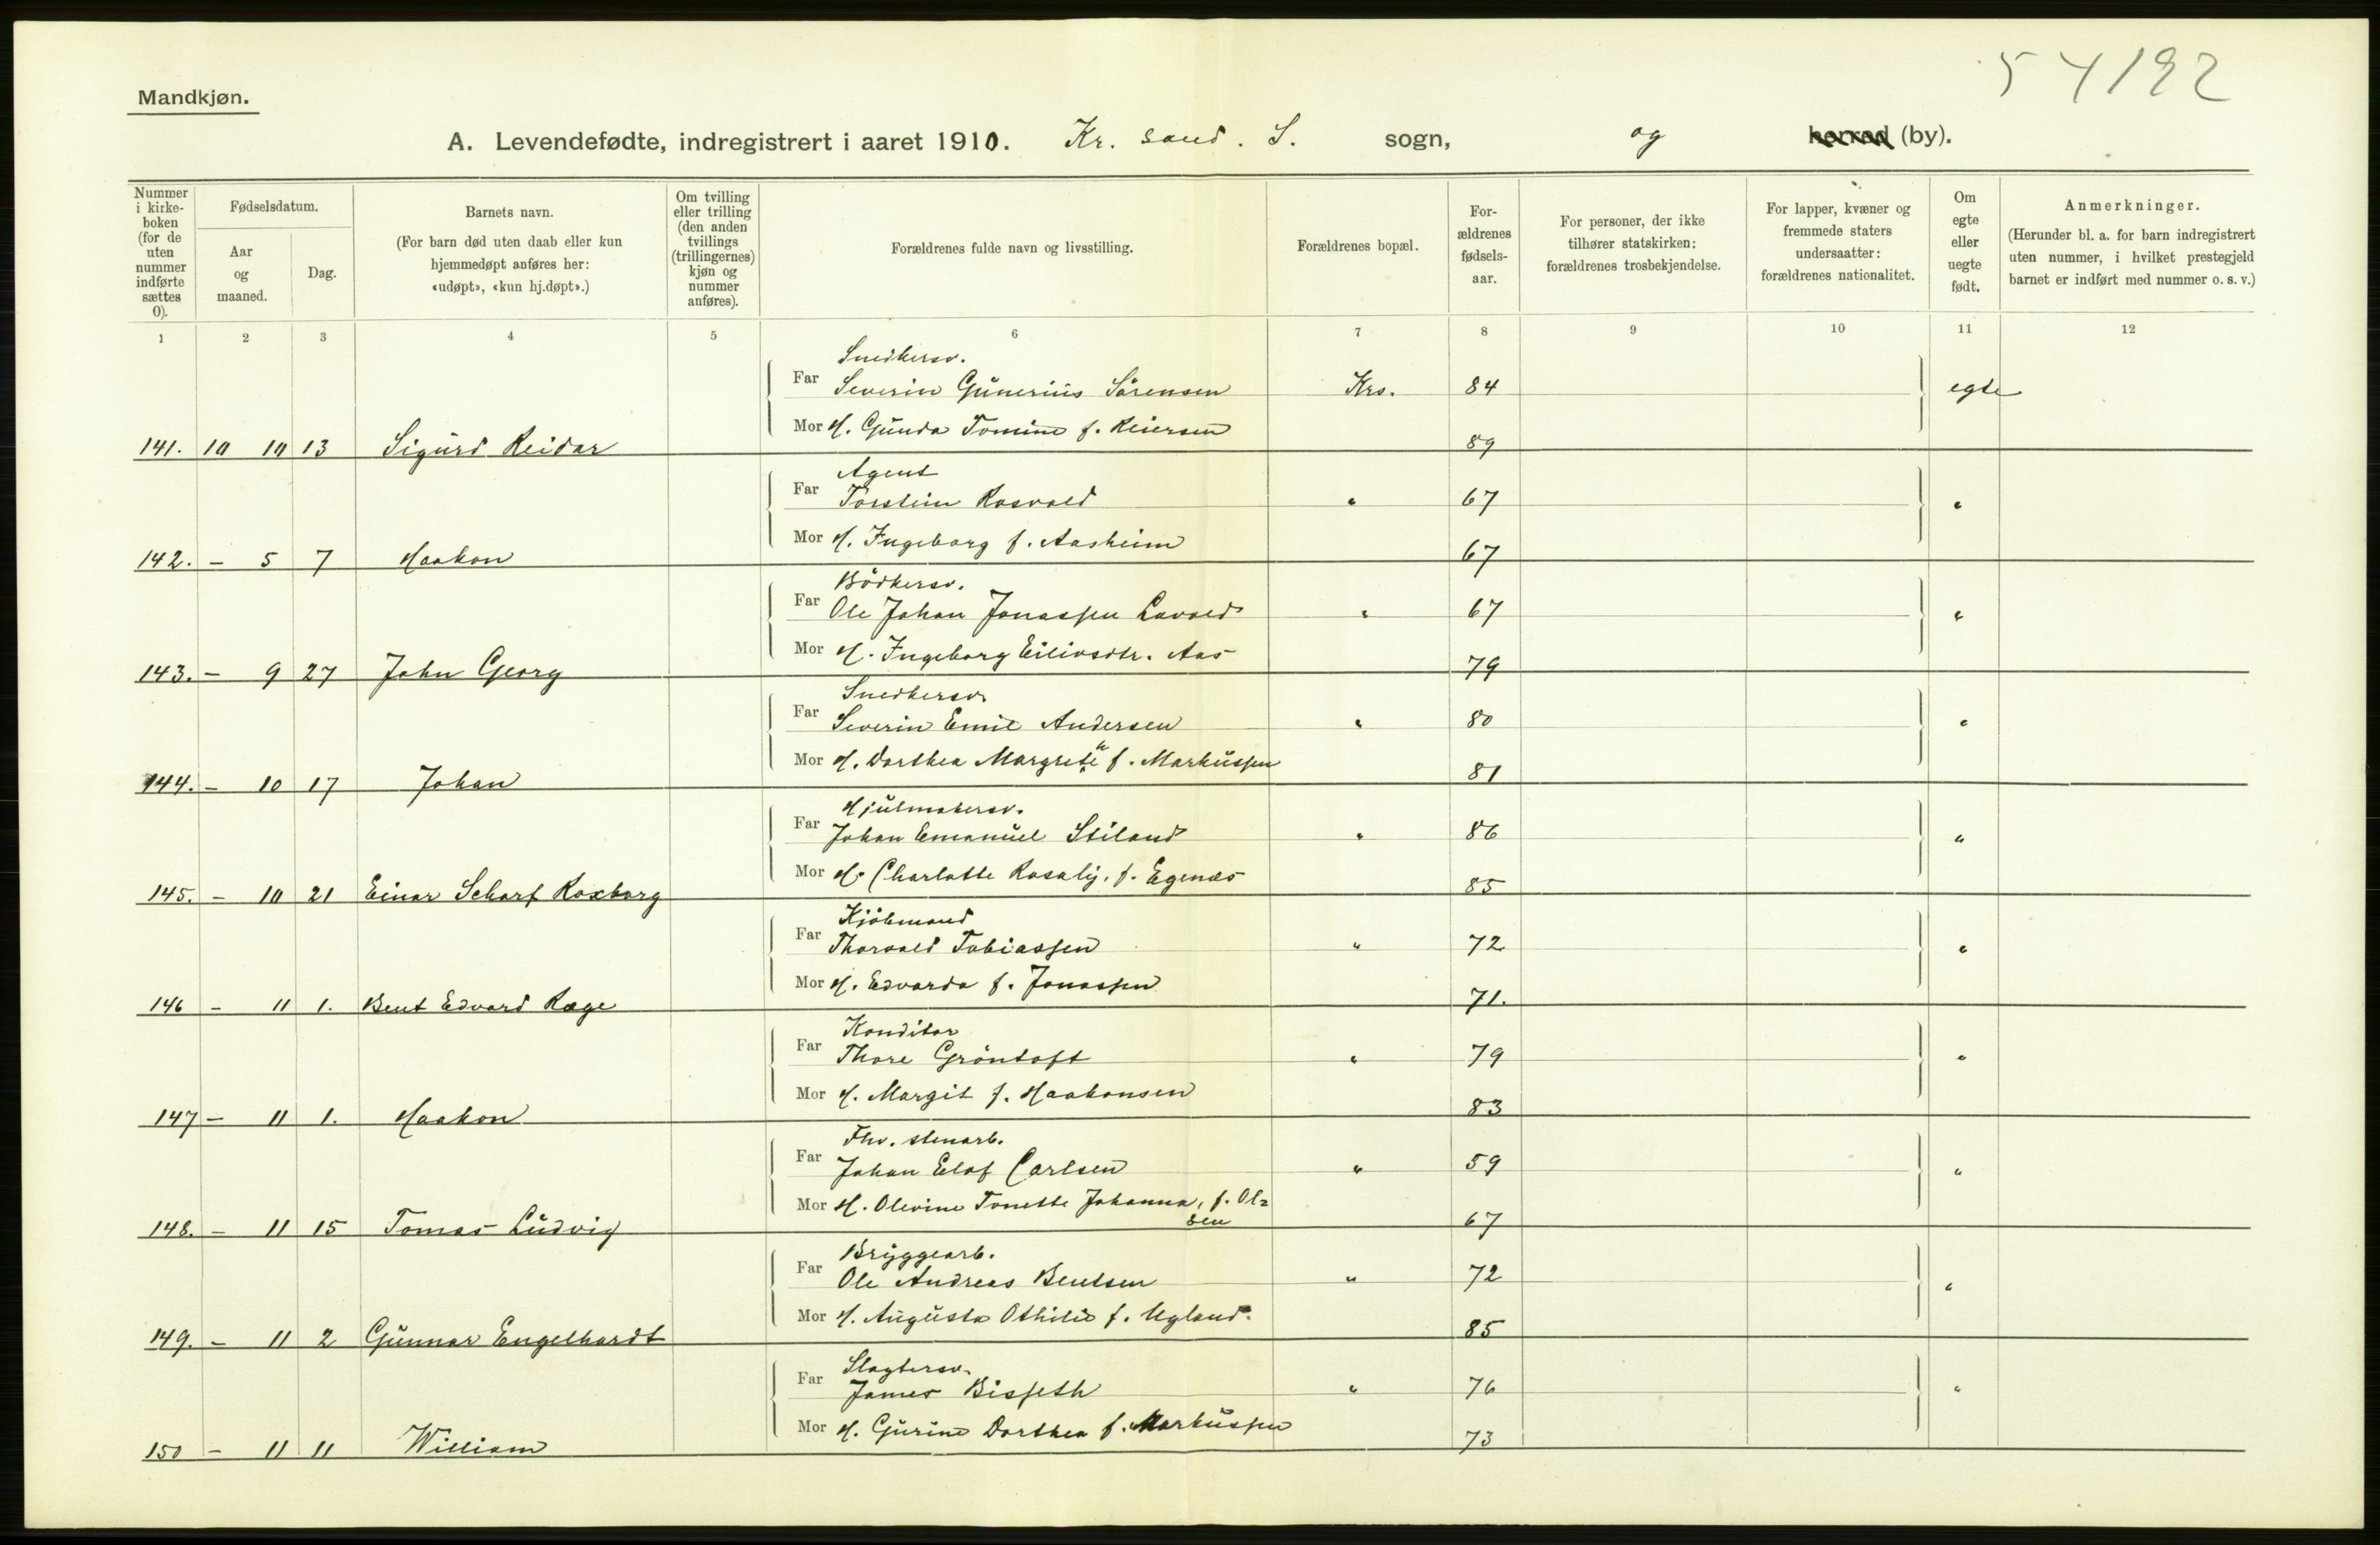 54192
Mandkjøn.
A. Levendefødte, indregistrert i aaret 1910. Kr. sand. S. sogn, og herred (by).
Nummer i kirke-boken (for de uten nummer indførte sættes 0).
Fødselsdatum.
Aar og maaned.
Dag.
Barnets navn.
(For barn død uten daab eller kun hjemmedøpt anføres her: «udøpt», «kun hj.døpt».)
Om tvilling eller trilling (den anden tvillings (trillingernes) kjøn og nummer anføres).
Forældrenes fulde navn og livsstilling.
Forældrenes bopæl.
For-ældrenes fødsels-aar.
For personer, der ikke tilhører statskirken: forældrenes trosbekjendelse.
For lapper, kvæner og fremmede staters undersaatter: forældrenes nationalitet.
Om egte eller uegte født.
Anmerkninger.
(Herunder bl. a. for barn indregistrert uten nummer, i hvilket prestegjeld barnet er indført med nummer o. s. v.)
1 2 3 4 5 6 7 8 9 10 11 12
Snedkersv.
Far Severin Gunerius Sörensen Krs. 84 egte
Mor H. Gunda Tomine f. Reiersen 89
141. 10 10 13 Sigurd Reidar
Agent
Far Torstein Rosvold " 67 "
Mor H. Ingeborg f. Aasheim 67
142. - 5 7 Haakon
Bödkersv.
Far Ole Johan Jonassen Lavold " 67 "
Mor H. Ingeborg Eilivsdtr. Aas 79
143. - 9 27 John Georg
Snedkersv.
Far Severin Emil Andersen " 80 "
Mor H. Dorthea Margrete f. Markussen 81
144. - 10 17 Johan
Hjulmakersv.
Far Johan Emanuel Stiland " 86 "
Mor H. Charlotte Rosaly, f. Egenæs 85
145. - 10 21 Einar Scharf Roxborg
Kjöbmand
Far Thorvald Tobiassen " 72 "
Mor H. Edvarda f. Jonassen 71.
146 - 11 1. Bent Edvard Ræge
Konditor
Far Thore Gröntoft " 79 "
Mor H. Margit f. Haakonsen 83
147 - 11 1. Haakon
Fhv. stenarb.
Far Johan Elof Carlsen " 59 "
Mor H. Olevine Tonette Johanna, f. Ol=
sen 67
148. - 11 15 Tomas Ludvig
Bryggearb.
Far Ole Andreas Bentsen " 72 "
Mor H. Augusta Othilie f. Ugland. 85
149. - 11 2 Gunnar Engelhardt
Slagtersv.
Far James Bisseth " 76 "
Mor H. Gurine Dorthea f. Markussen 73
150 - 11 11 William